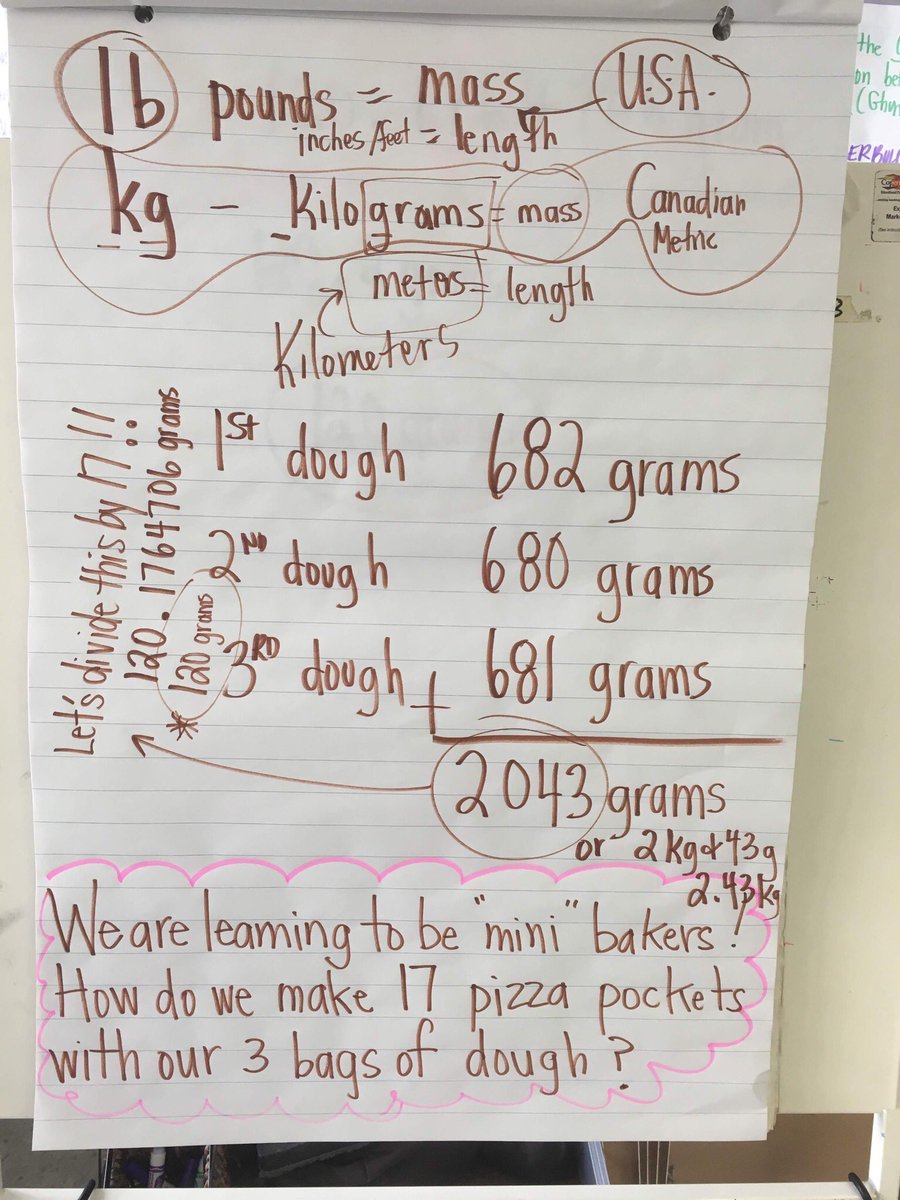 lb pounds = mass U.S.A.
inches/feet = length
kg - Kilograms = mass Canadian
Metric
meters = length
Kilometers
1st dough 682 grams
2ND dough 680 grams
3RD dough + 681 grams
2043 grams
or 2kg + 43g
2.43kg
Let's divide this by 17!!
120.1764706 grams
* 120 grams
We are learning to be "mini" bakers!
How do we make 17 pizza pockets
with our 3 bags of dough?
the
on be
ERBUL